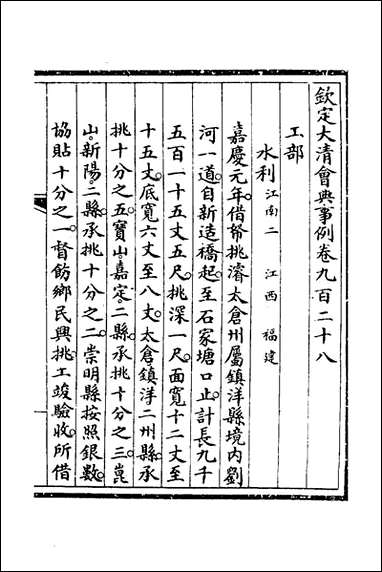 欽定大清會典事例卷九百二十八
工部
水利 江南二 江西 福建
嘉慶元年。借帑挑濬太倉州屬鎮洋縣境內劉
河一道。自新造橋起。至石家塘口止。計長九千
五百一十五丈五尺。挑深一尺。面寬十二丈至
十五丈。底寬六丈至八丈。太倉鎮洋二州縣承
挑十分之五。寶山。嘉定。二縣承挑十分之三。崑
山。新陽。二縣承挑十分之二。崇明縣按照銀數。
協貼十分之一。督飭鄉民興挑。工竣驗收。所借